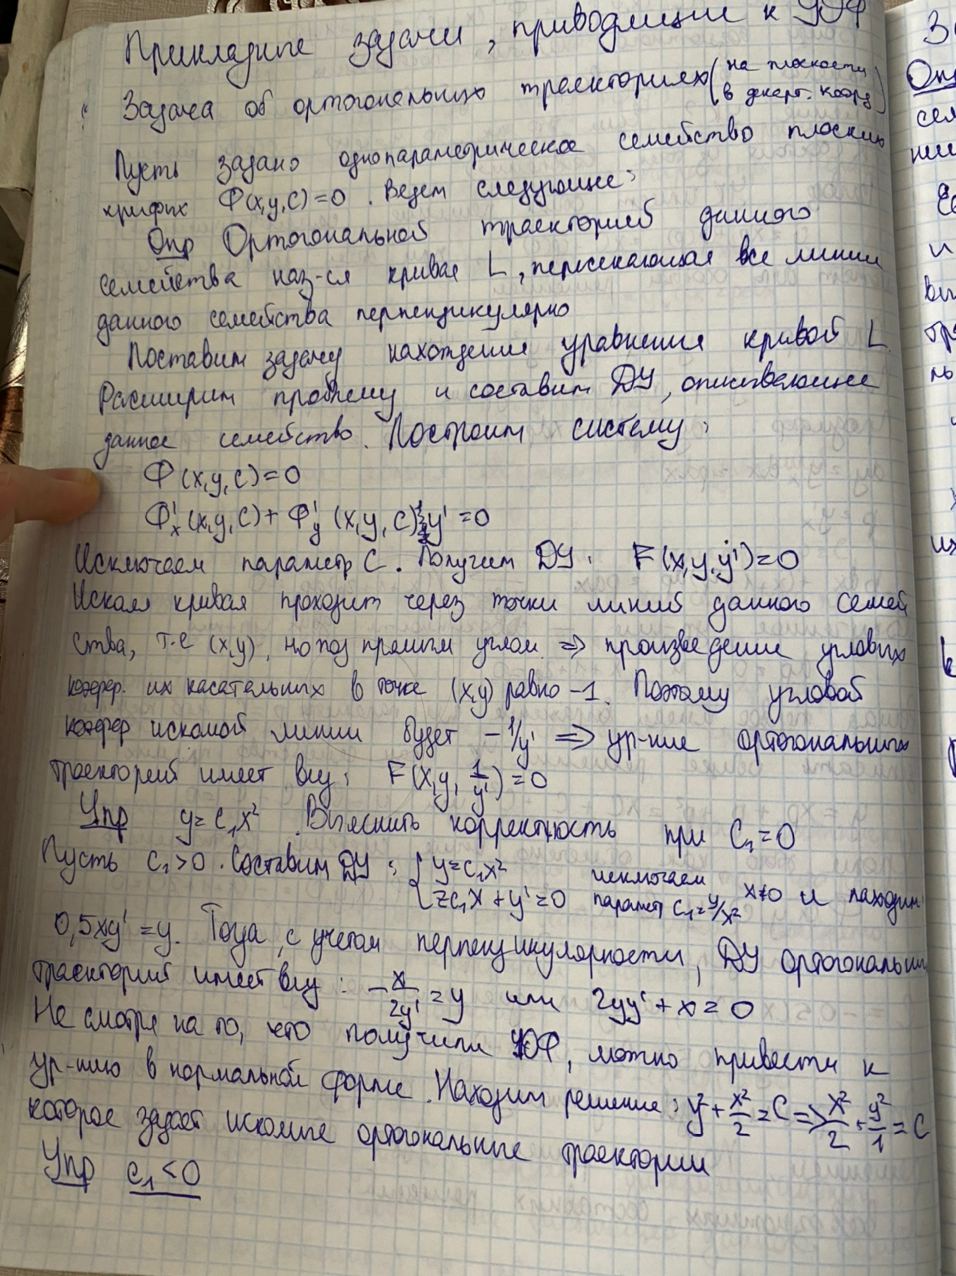 Прикладные задачи, приводящие к УОФ
Задача об ортогональных траекториях (на плоскости в декарт. коорд)
Пусть задано однопараметрическое семейство плоских
кривых Ф(x,y,c)=0. Введем следующее:
Опр Ортогональной траекторией данного
семейства наз-ся кривая L, пересекающая все линии
данного семейства перпендикулярно
Поставим задачу нахождения уравнения кривой L.
Расширим проблему и составим ДУ, описывающее
данное семейство. Построим систему:
Ф(x,y,c)=0
Ф'x(x,y,c)+Ф'y(x,y,c)y'=0
Исключаем параметр C. Получим ДУ: F(x,y,y')=0
Иском кривая проходит через точки линий данного семей
ства, т.е (x,y), но под прямым углом => произведение угловых
коэфер. их касательных в точке (x,y) равно -1. Поэтому угловой
коэфер искомой линии будет -1/y' => ур-ние ортогональных
траекторий имеет вид: F(x,y,1/y')=0
Упр y=c₁x². Выяснить корректность при C₁=0
Пусть c₁>0. Составим ДУ: { y=c₁x² исключаем
2c₁x+y'=0 парамет c₁=y/x² x≠0 и находим
0,5xy'=y. Тогда, с учетом перпендикулярности, ДУ ортогональных
траекторий имеет вид: -x/2y'=y или 2yy'+x=0
Не смотря на то, что получили УОФ, можно привести к
ур-нию в нормальной форме. Находим решение: y²+x²/2=C=>x²/2+y²/1=C
которое задает искомые ортогональные траектории
Упр c₁<0